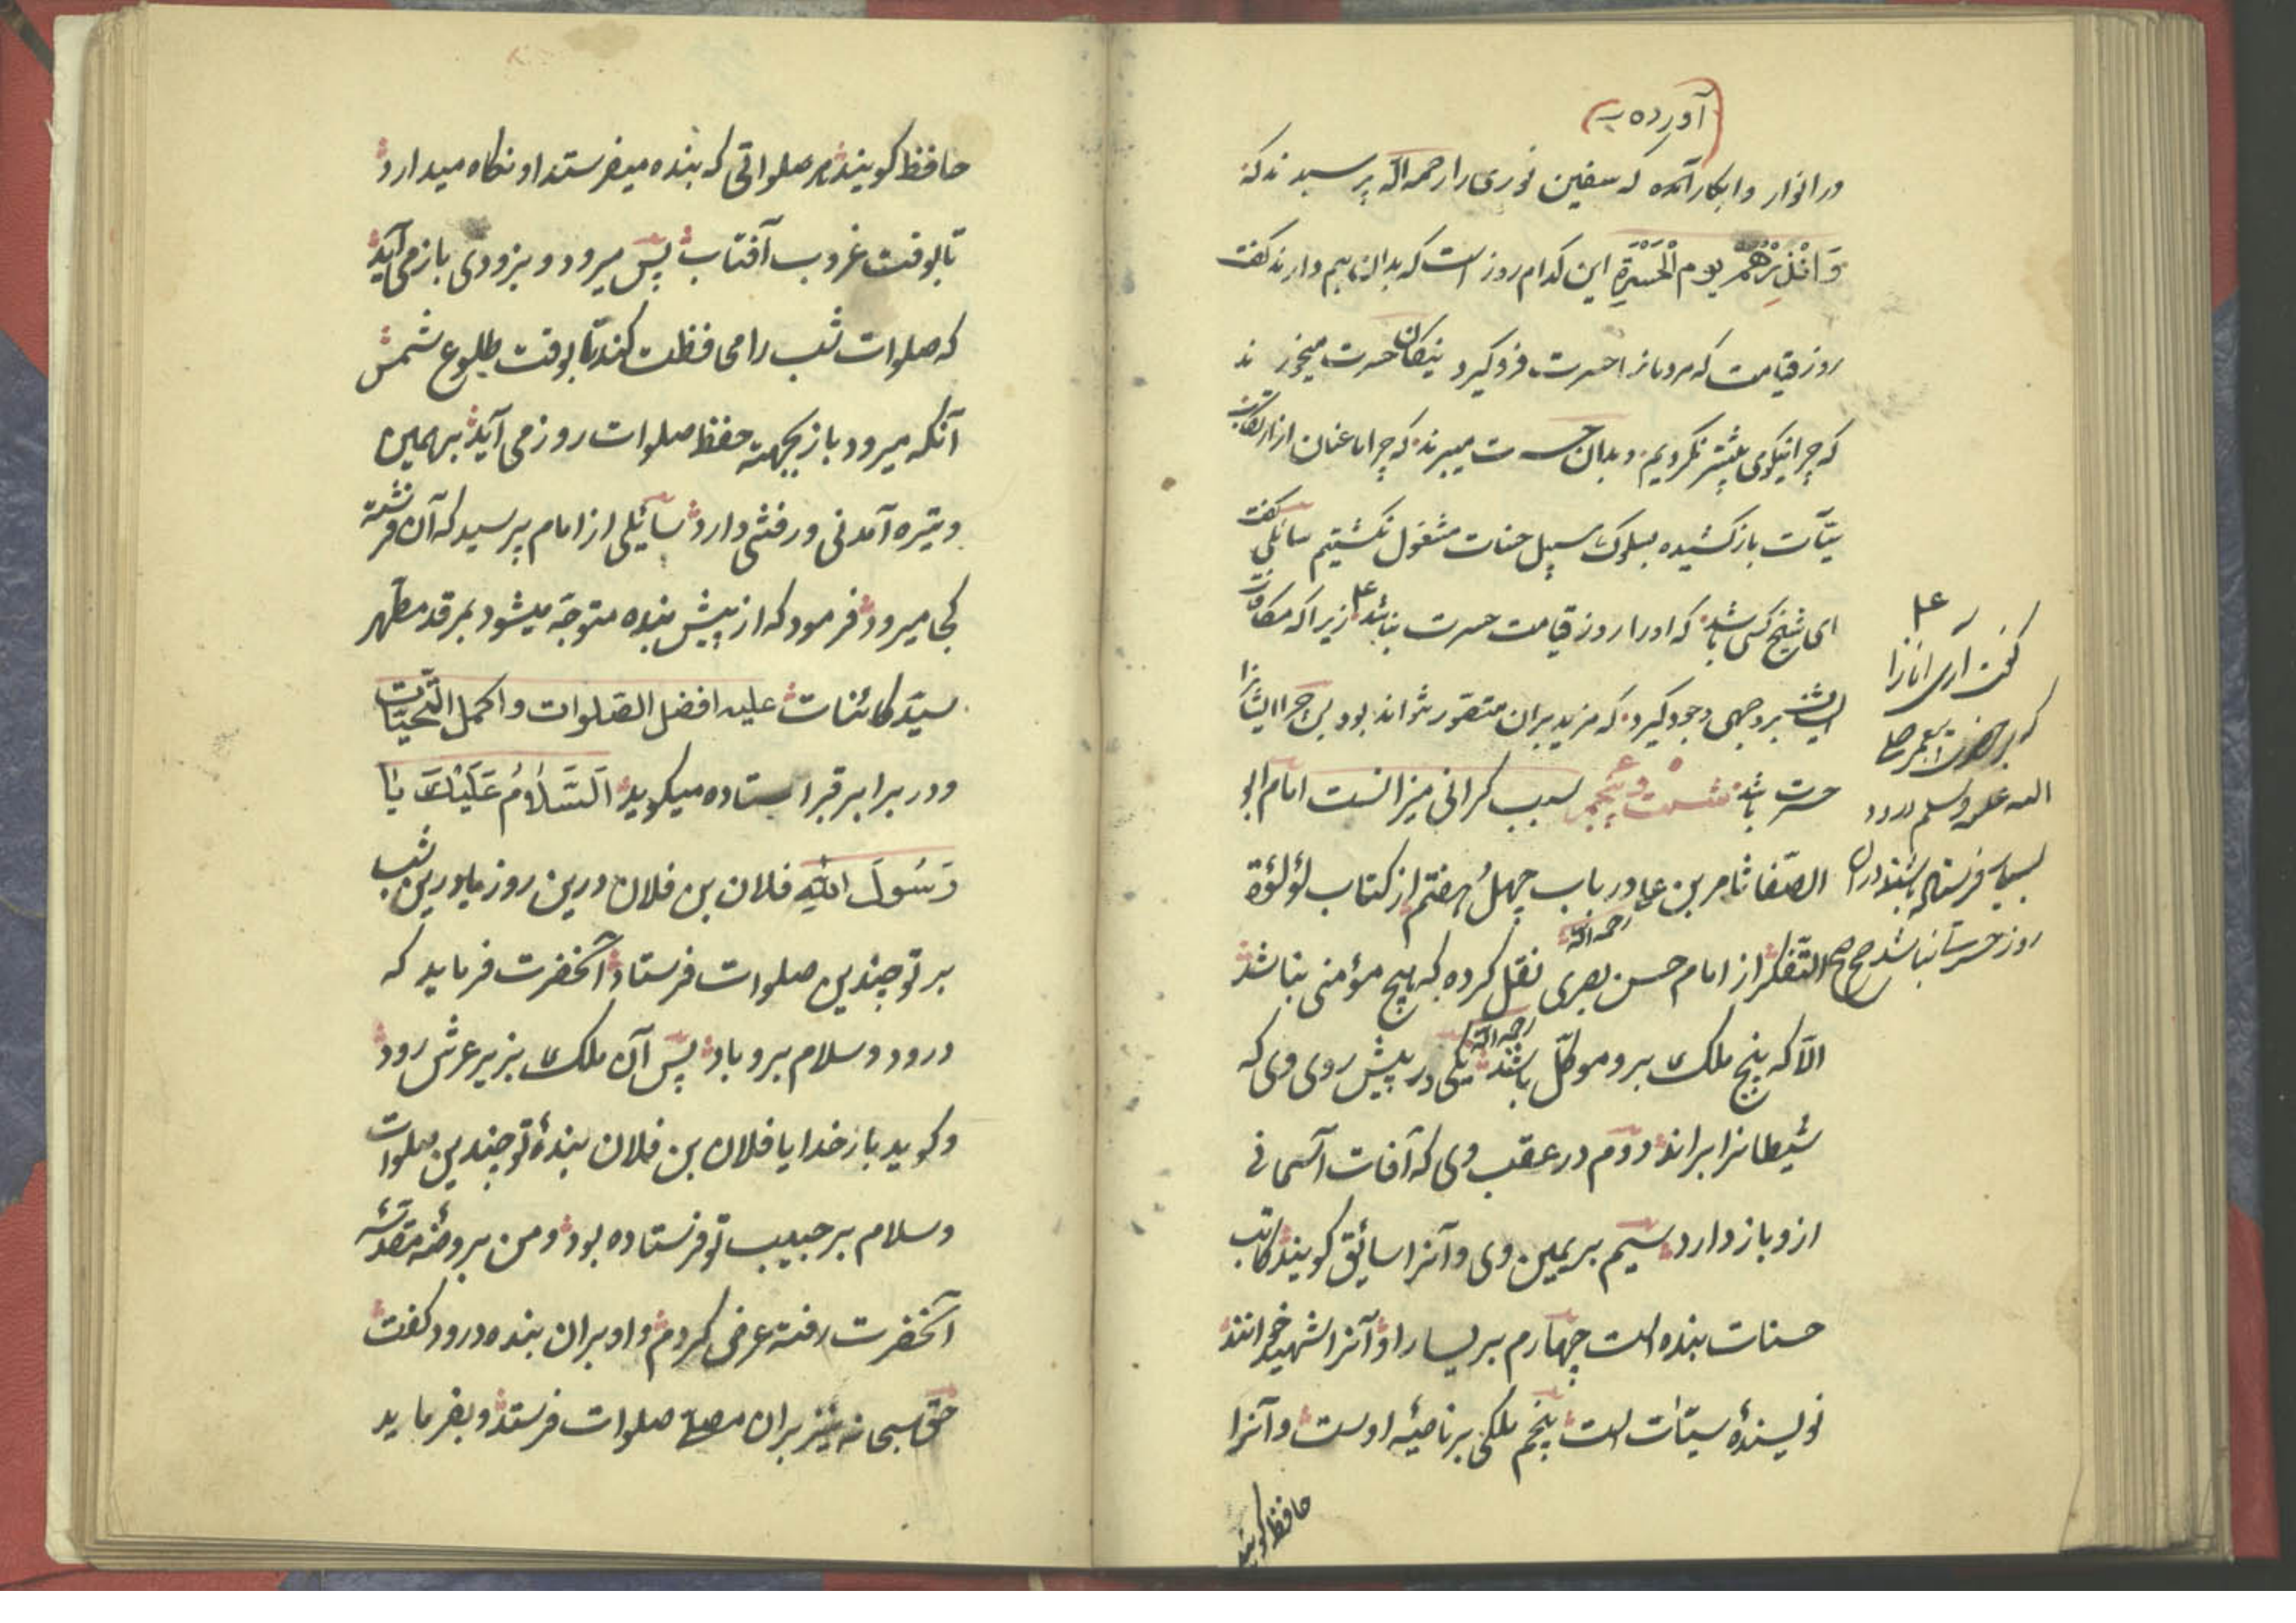 آورده به
در انوار و ابکار آمده که سفین ثوری را رحمه الله پرسیدند که
وَاَنْذِرْهُمْ یوم الْحَسْرَةِ این کدام روز است که بدان بیم دارند گفت
روز قیامت که مردمانرا حسرت فروگیرد نیکان حسرت میخورند
که چرا نیکوی بیشتر نکردیم و بدان حسرت میبرند که چرا ما عنان از ارتکاب
سیّآت باز کشیده بسلوک سبیل حسنات مشغول نکشتیم سائلی گفت
ای شیخ کسی باشد که اورا روز قیامت حسرت نباشد زیرا که مکافات
ایشان بر وجهی وجود گیرد که مزید بران متصور نتواند بود پس چرا ایشانرا
حسرت باشد شصت و پنجم سبب کرانی میزانست امام ابو
الصّفا ثامر بن علی در باب چهل و هفتم از کتاب لؤلؤة
التّفکر از امام حسن بصری رحمه الله نقل کرده که هیچ مؤمنی نباشد
الّا که پنج ملک برو موکّل باشند یکی در پیش روی وی که
شیطانرا براند دوّم در عقب وی که آفات آسمانی
ازو باز دارد سیم بر یمین وی و آنرا سائق گویند کاتب
حسنات بنده است چهارم بر یسار او و آنرا شهید خوانند
نویسندهٔ سیّئات است پنجم ملکی بر ناصیهٔ اوست و آنرا
حافظ گویند
گفت آری آنانرا
که بر حضرت پیغمبر صلی
الله علیه وسلم درود
بسیار فرستاده باشند در ان
روز حسرت نباشد صح صح
حافظ کویند هر صلواتی که بنده میفرستد او نکاه میدارد
تا بوقت غروب آفتاب پس میرود و بزودی باز می آید
که صلوات شب را محافظت کند تا بوقت طلوع شمس
آنکه میرود باز بجهت حفظ صلوات روز می آید برهمین
وتیره آمدنی و رفتنی دارد سائیلی از امام پرسید که آن فرشته
کجا میرود فرمود که از پیش بنده متوجّه میشود بمرقد مطهر
سیّد کائنات علیه افضل الصّلوات و اکمل التّحیّات
و در برابر قبر ایستاده میکوید اَلسَّلامُ عَلَیْكَ یا
رَسُولَ اللهِ فلان بن فلان درین روز یا درین شب
بر تو چندین صلوات فرستاد آنحضرت فرماید که
درود و سلام برو باد پس آن ملک بزیر عرش رود
و کوید بار خدایا فلان بن فلان بندهٔ تو چندین صلوات
و سلام بر حبیب تو فرستاده بود و من بروضهٔ مقدّسهٔ
آنحضرت رفته عرض کردم و او بران بنده درود کفت
حق سبحانه نیز بران مصلی صلوات فرستد و بفرماید